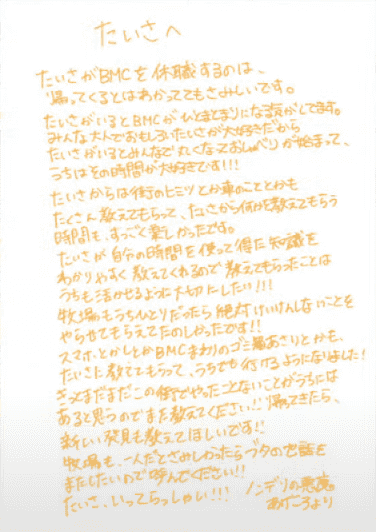 たいさへ
たいさがBMCを休職するのは、
帰ってくるとはわかっててもさみしいです。
たいさがいるとBMCがひとまとまりになる気がしてます。
みんな大人でおもしろいたいさが大好きだから
たいさがいるとみんなで丸くなっておしゃべりが始まって、
うちはその時間が大好きです!!!
たいさからは街のヒミツとか車のこととかも
たくさん教えてもらって、たいさから何かを教えてもらう
時間も、すっごく楽しかったです。
たいさが自分の時間を使って得た知識を
わかりやすく教えてくれるので教えてもらったことは
うちも活かせるように大切にしたい!!!
牧場もうちひとりだったら絶対けいけんしないことを
やらせてもらえてたのしかったです!!
スマホとかしとかBMCまわりのゴミ箱あさりとかも、
たいさに教えてもらって、うちでも行けるようになりました!
まだまだこの街でやったことないことがうちには
あると思うのでまた教えてください!! 帰ってきたら、
新しい発見も教えてほしいです!!
牧場も、一人だとさみしかったらブタのお話を
またしたいので呼んでください!!
たいさ、いってらっしゃい!!! ノンデリの悪魔。
より